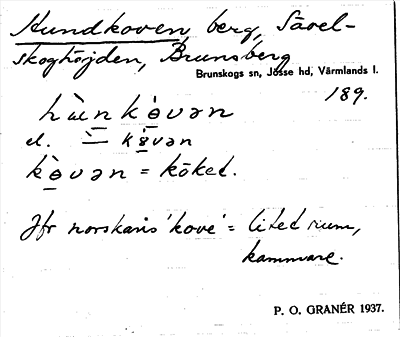 Hundkoven, berg, Sävel-
skoghöjden, Brunsberg
Brunskogs sn, Jösse hd, Värmlands l.
189.
hùn kòvən
el. = kòvən
kòvən = köket.
Jfr norskans 'kove' = litet rum,
kammare.
P. O. GRANÉR 1937.